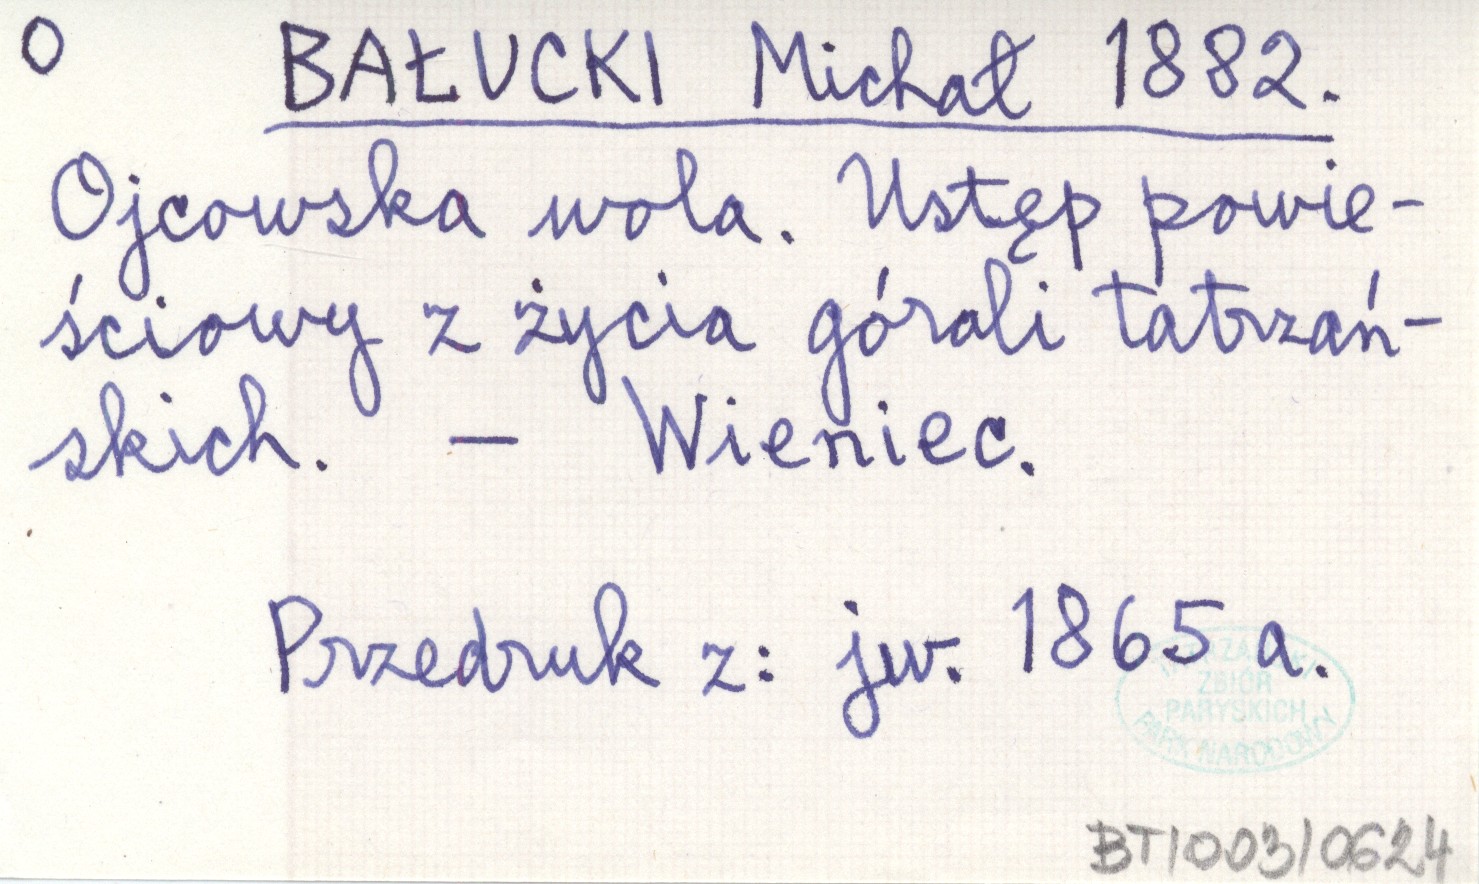 O BAŁUCKI Michał 1882.
Ojcowska wola. Ustęp powie-
ściowy z życia górali tatrzań-
skich. – Wieniec.
Przedruk z: jw. 1865 a.
TATRZAŃSKI
ZBIÓR
PARYSKICH
PARK NARODOWY
BT/003/0624